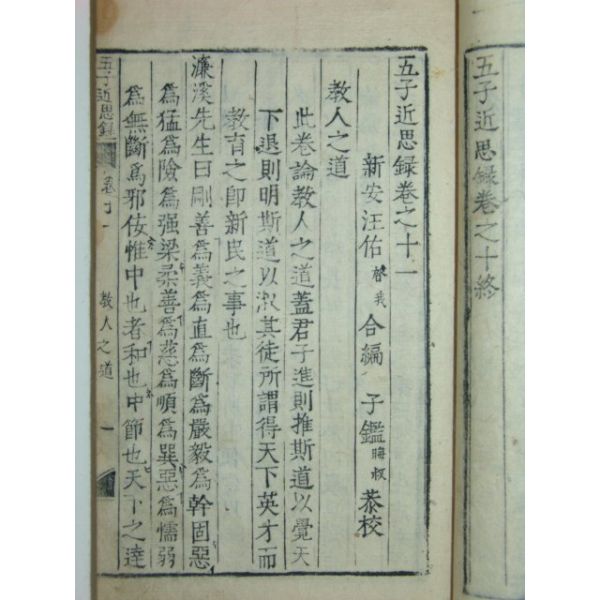 五子近思録卷之十終
五子近思録卷之十一
新安汪佑 啓我 合編 子鑑 晦叔 恭校
教人之道
此卷論教人之道蓋君子進則推斯道以覺天
下退則明斯道以淑其徒所謂得天下英才而
教育之即新民之事也
濂溪先生曰剛善為義為直為斷為嚴毅為幹固惡
為猛為隘為强梁柔善為慈為順為巽惡為懦弱
為無斷為邪佞惟中也者和也中節也天下之達
五子近思録 卷十一 教人之道 一